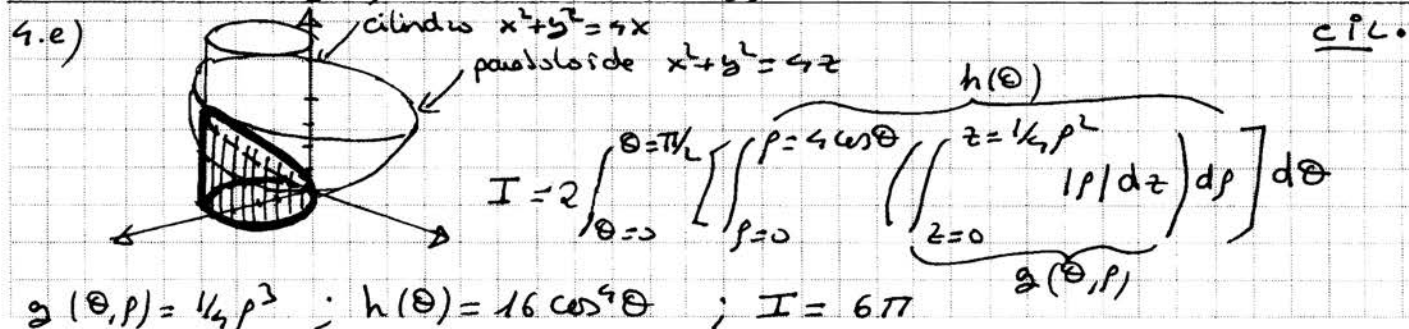 4.e)
cilindro x²+y²=4x
cil.
paraboloide x²+y²=4z
h(θ)
I = 2 ∫_{θ=0}^{θ=π/2} [ ∫_{ρ=0}^{ρ=4cosθ} ( ∫_{z=0}^{z=1/4ρ²} |ρ| dz ) dρ ] dθ
g(θ,ρ)
g(θ,ρ) = 1/4 ρ³ ; h(θ) = 16 cos⁴θ ; I = 6π